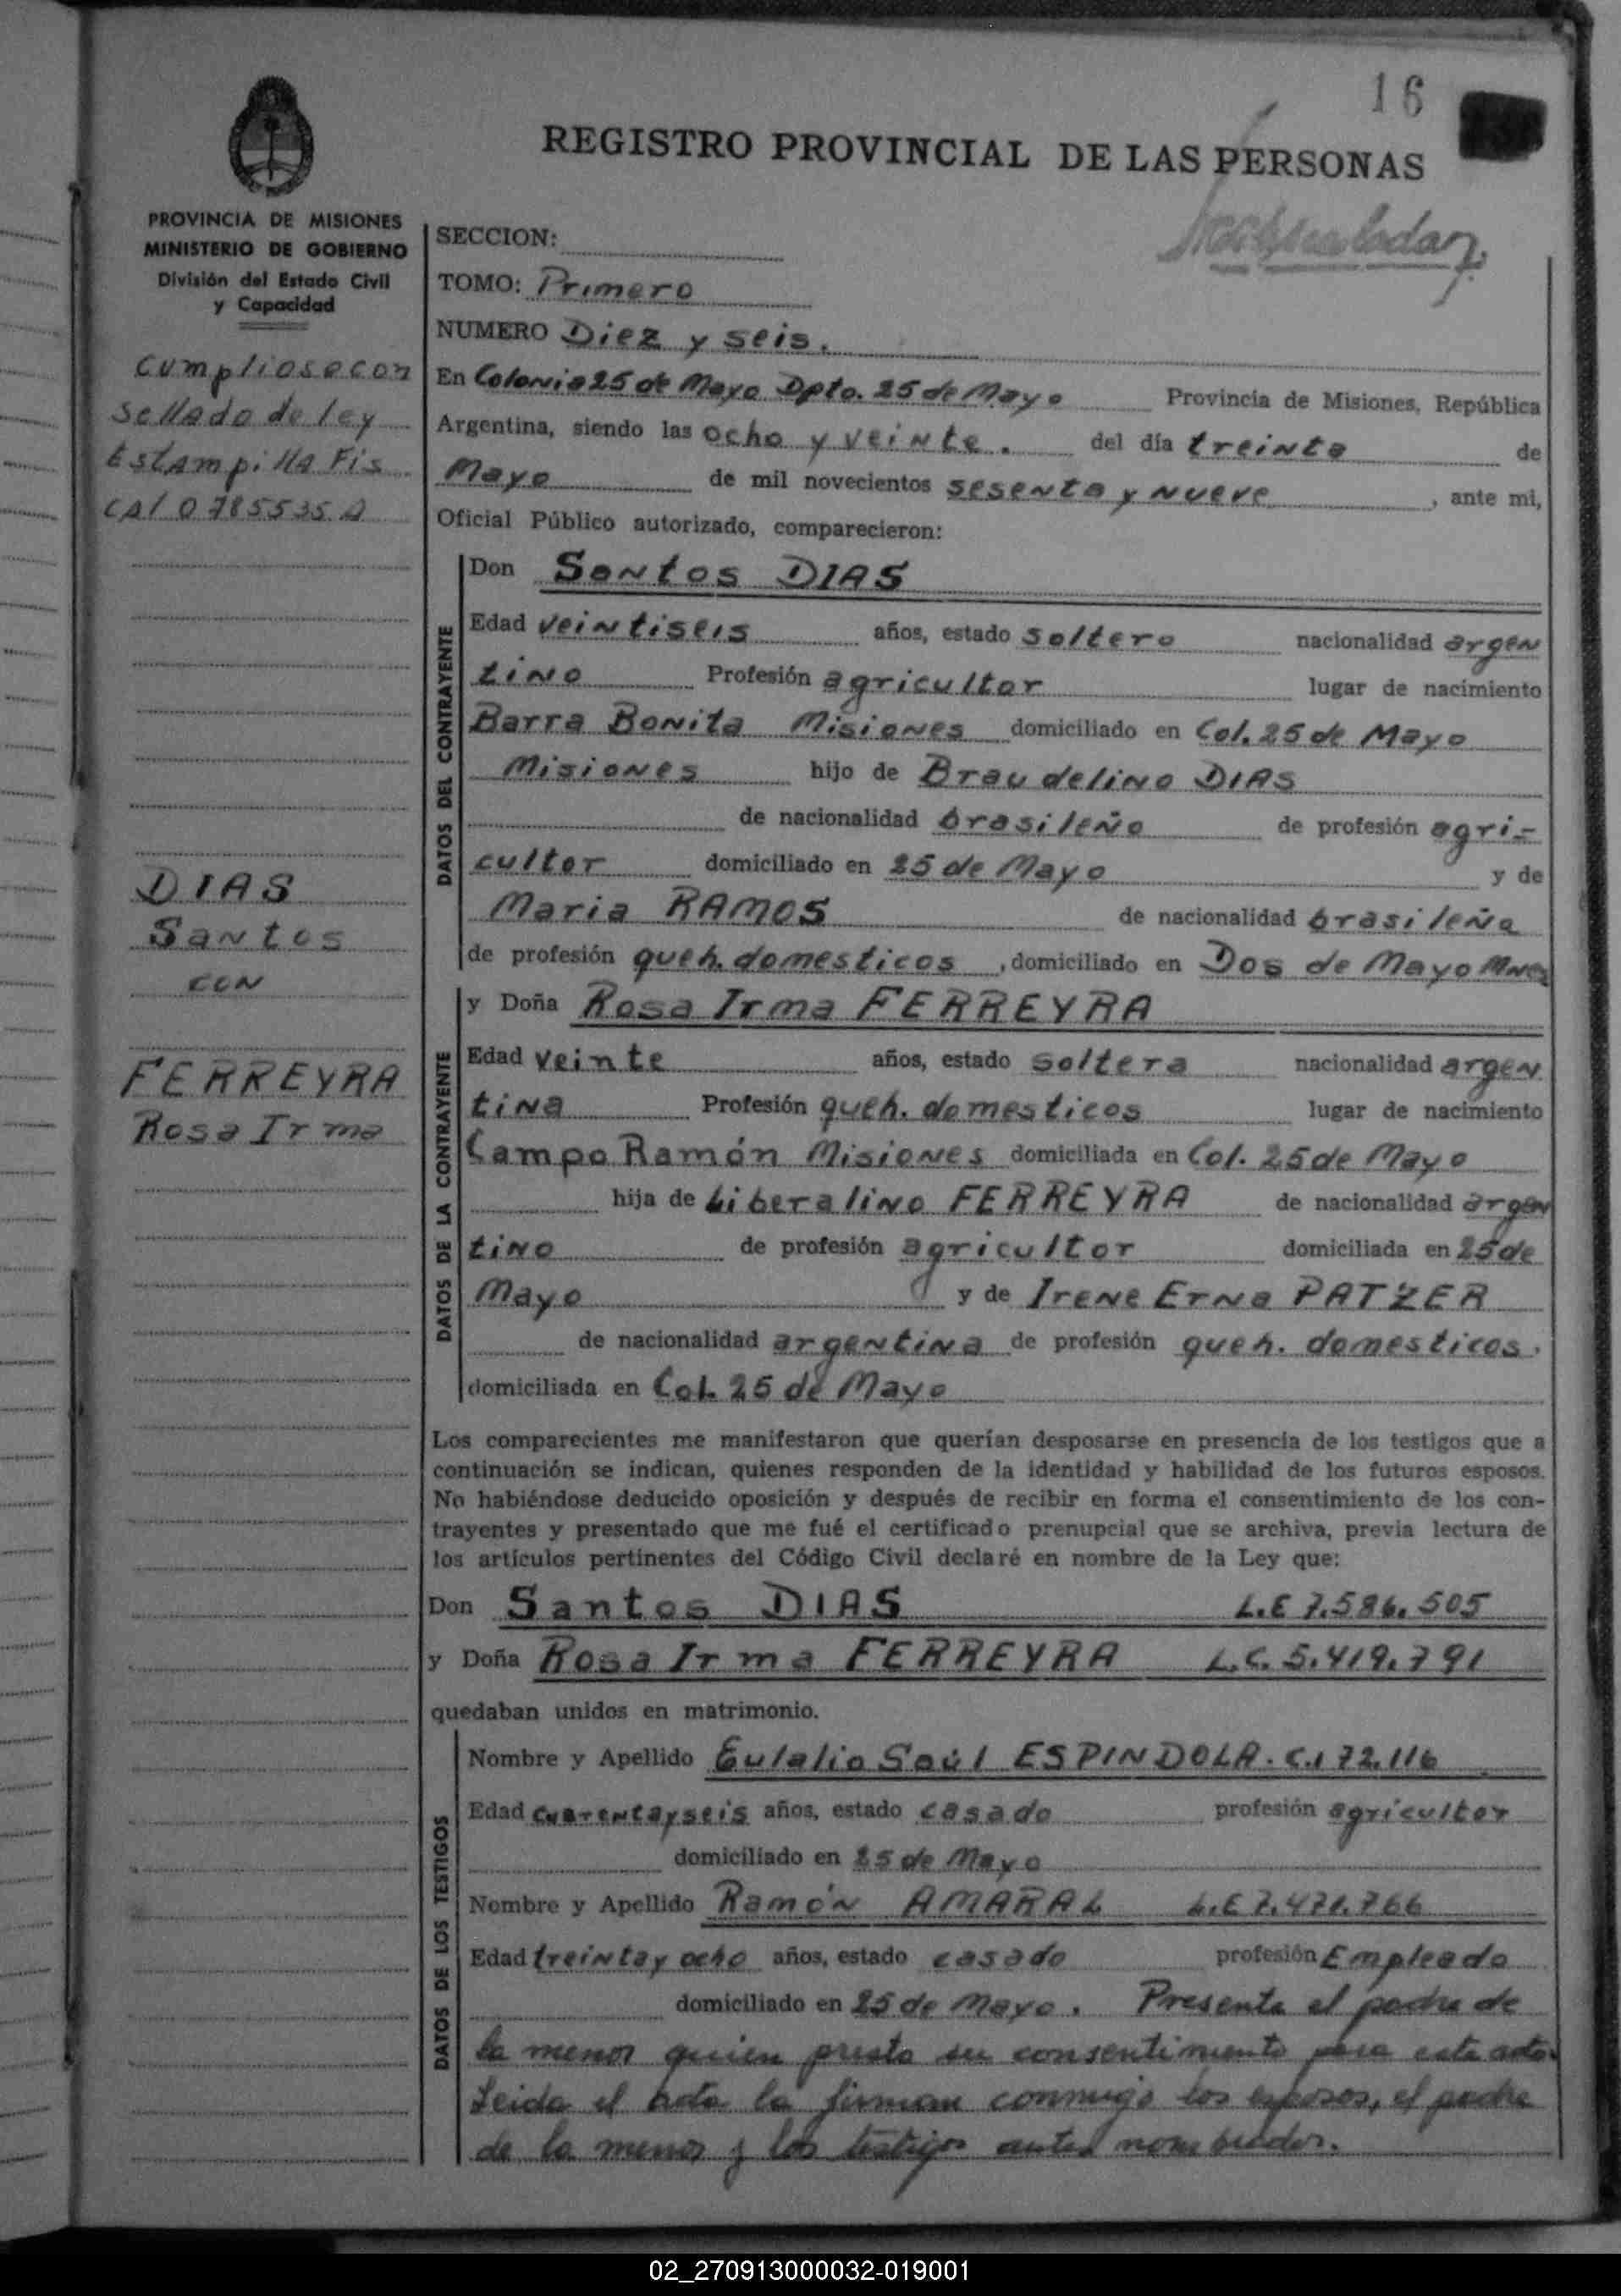 16
REGISTRO PROVINCIAL DE LAS PERSONAS
PROVINCIA DE MISIONES
MINISTERIO DE GOBIERNO
División del Estado Civil
y Capacidad
cumpliose con
sellado de ley
Estampilla Fis
cal 0785535 A
DIAS
Santos
con
FERREYRA
Rosa Irma
SECCION:
TOMO: Primero
NUMERO Diez y seis.
En Colonia 25 de Mayo Dpto. 25 de Mayo Provincia de Misiones, República
Argentina, siendo las ocho y veinte. del día treinta de
Mayo de mil novecientos sesenta y nueve, ante mi,
Oficial Público autorizado, comparecieron:
DATOS DEL CONTRAYENTE
Don Santos DIAS
Edad veintiseis años, estado soltero nacionalidad argen
tino Profesión agricultor lugar de nacimiento
Barra Bonita Misiones domiciliado en Col. 25 de Mayo
Misiones hijo de Braudelino DIAS
de nacionalidad brasileño de profesión agri-
cultor domiciliado en 25 de Mayo y de
Maria RAMOS de nacionalidad brasileña
de profesión queh. domesticos, domiciliado en Dos de Mayo Mnes
DATOS DE LA CONTRAYENTE
y Doña Rosa Irma FERREYRA
Edad veinte años, estado soltera nacionalidad argen
tina Profesión queh. domesticos lugar de nacimiento
Campo Ramón Misiones domiciliada en Col. 25 de Mayo
hija de Liberalino FERREYRA de nacionalidad argen
tino de profesión agricultor domiciliada en 25 de
Mayo y de Irene Erna PATZER
de nacionalidad argentina de profesión queh. domesticos.
domiciliada en Col. 25 de Mayo
Los comparecientes me manifestaron que querían desposarse en presencia de los testigos que a
continuación se indican, quienes responden de la identidad y habilidad de los futuros esposos.
No habiéndose deducido oposición y después de recibir en forma el consentimiento de los con-
trayentes y presentado que me fué el certificado prenupcial que se archiva, previa lectura de
los artículos pertinentes del Código Civil declaré en nombre de la Ley que:
Don Santos DIAS L.E 7.586.505
y Doña Rosa Irma FERREYRA L.C. 5.419.791
quedaban unidos en matrimonio.
DATOS DE LOS TESTIGOS
Nombre y Apellido Eulalio Saúl ESPINDOLA. C.I 72.116
Edad cuarentayseis años, estado casado profesión agricultor
domiciliado en 25 de Mayo
Nombre y Apellido Ramón AMARAL L.E 7.471.766
Edad treinta y ocho años, estado casado profesión Empleado
domiciliado en 25 de Mayo. Presente el padre de
la menor quien presta su consentimiento para este acto.
Leida el acta la firman conmigo los esposos, el padre
de la menor y los testigos antes nombrados.
02_270913000032-019001